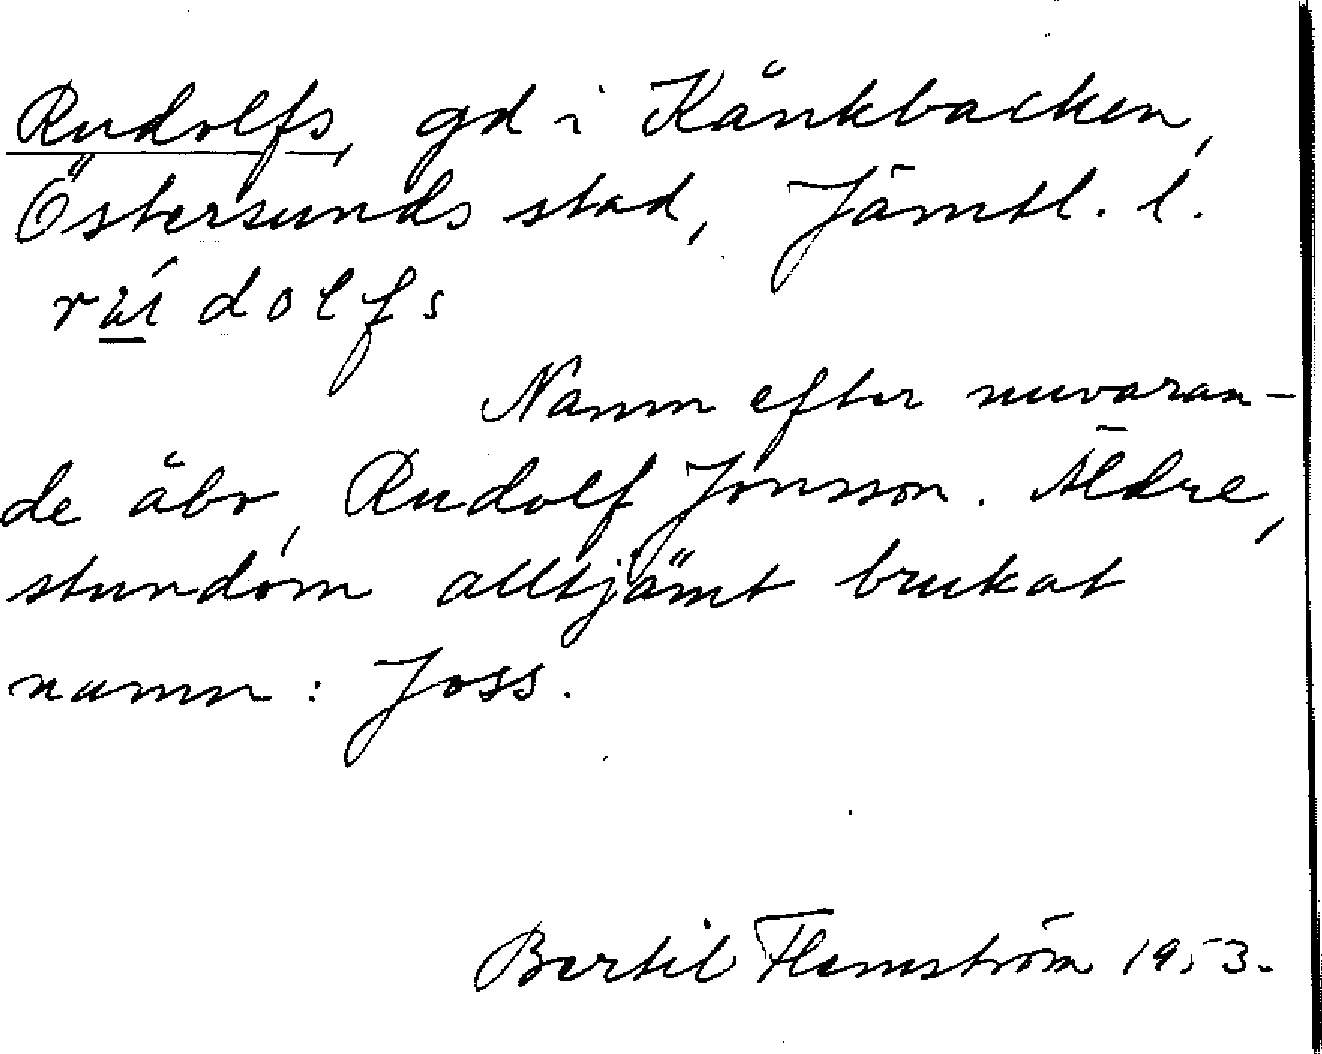 Rudolfs, gd i Kånkbacken,
Östersunds stad, Jämtl. l.
dolfs
Namn efter nuvaran-
de åbo, Rudolf Jonsson. Äldre,
stundom alltjämt brukat
namn: Joss.
Bertil Flemström 1953.